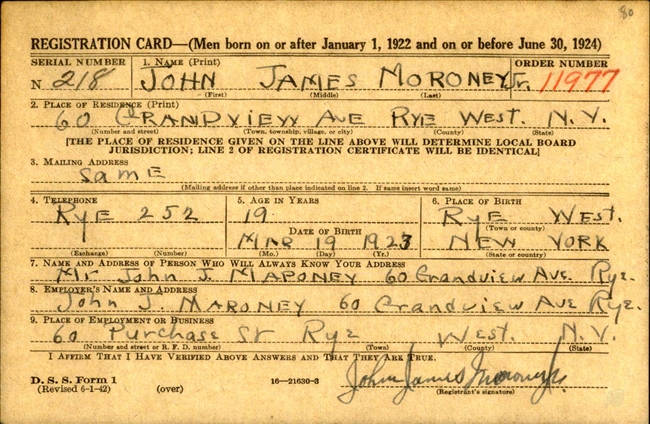 80
REGISTRATION CARD—(Men born on or after January 1, 1922 and on or before June 30, 1924)
SERIAL NUMBER 1. NAME (Print) ORDER NUMBER
N 218 JOHN JAMES MORONEY Jr. 11977
(First) (Middle) (Last)
2. PLACE OF RESIDENCE (Print)
60 GRANDVIEW AVE RYE WEST. N.Y.
(Number and street) (Town, township, village, or city) (County) (State)
[THE PLACE OF RESIDENCE GIVEN ON THE LINE ABOVE WILL DETERMINE LOCAL BOARD
JURISDICTION; LINE 2 OF REGISTRATION CERTIFICATE WILL BE IDENTICAL]
3. MAILING ADDRESS
SamE
(Mailing address if other than place indicated on line 2. If same insert word same)
4. TELEPHONE 5. AGE IN YEARS 6. PLACE OF BIRTH
RYE 252 19 RYE WEST.
(Town or county)
DATE OF BIRTH
MAR 19 1923 NEW YORK
(Exchange) (Number) (Mo.) (Day) (Yr.) (State or country)
7. NAME AND ADDRESS OF PERSON WHO WILL ALWAYS KNOW YOUR ADDRESS
Mr John J. MARONEY 60 Grandview Ave. Rye.
8. EMPLOYER'S NAME AND ADDRESS
John J. MARONEY 60 Grandview Ave Rye.
9. PLACE OF EMPLOYMENT OR BUSINESS
60 Purchase St Rye West. N.Y.
(Number and street or R. F. D. number) (Town) (County) (State)
I AFFIRM THAT I HAVE VERIFIED ABOVE ANSWERS AND THAT THEY ARE TRUE.
D. S. S. Form 1
(Revised 6-1-42) (over) 16—21630-3 John James Moroney Jr.
(Registrant's signature)